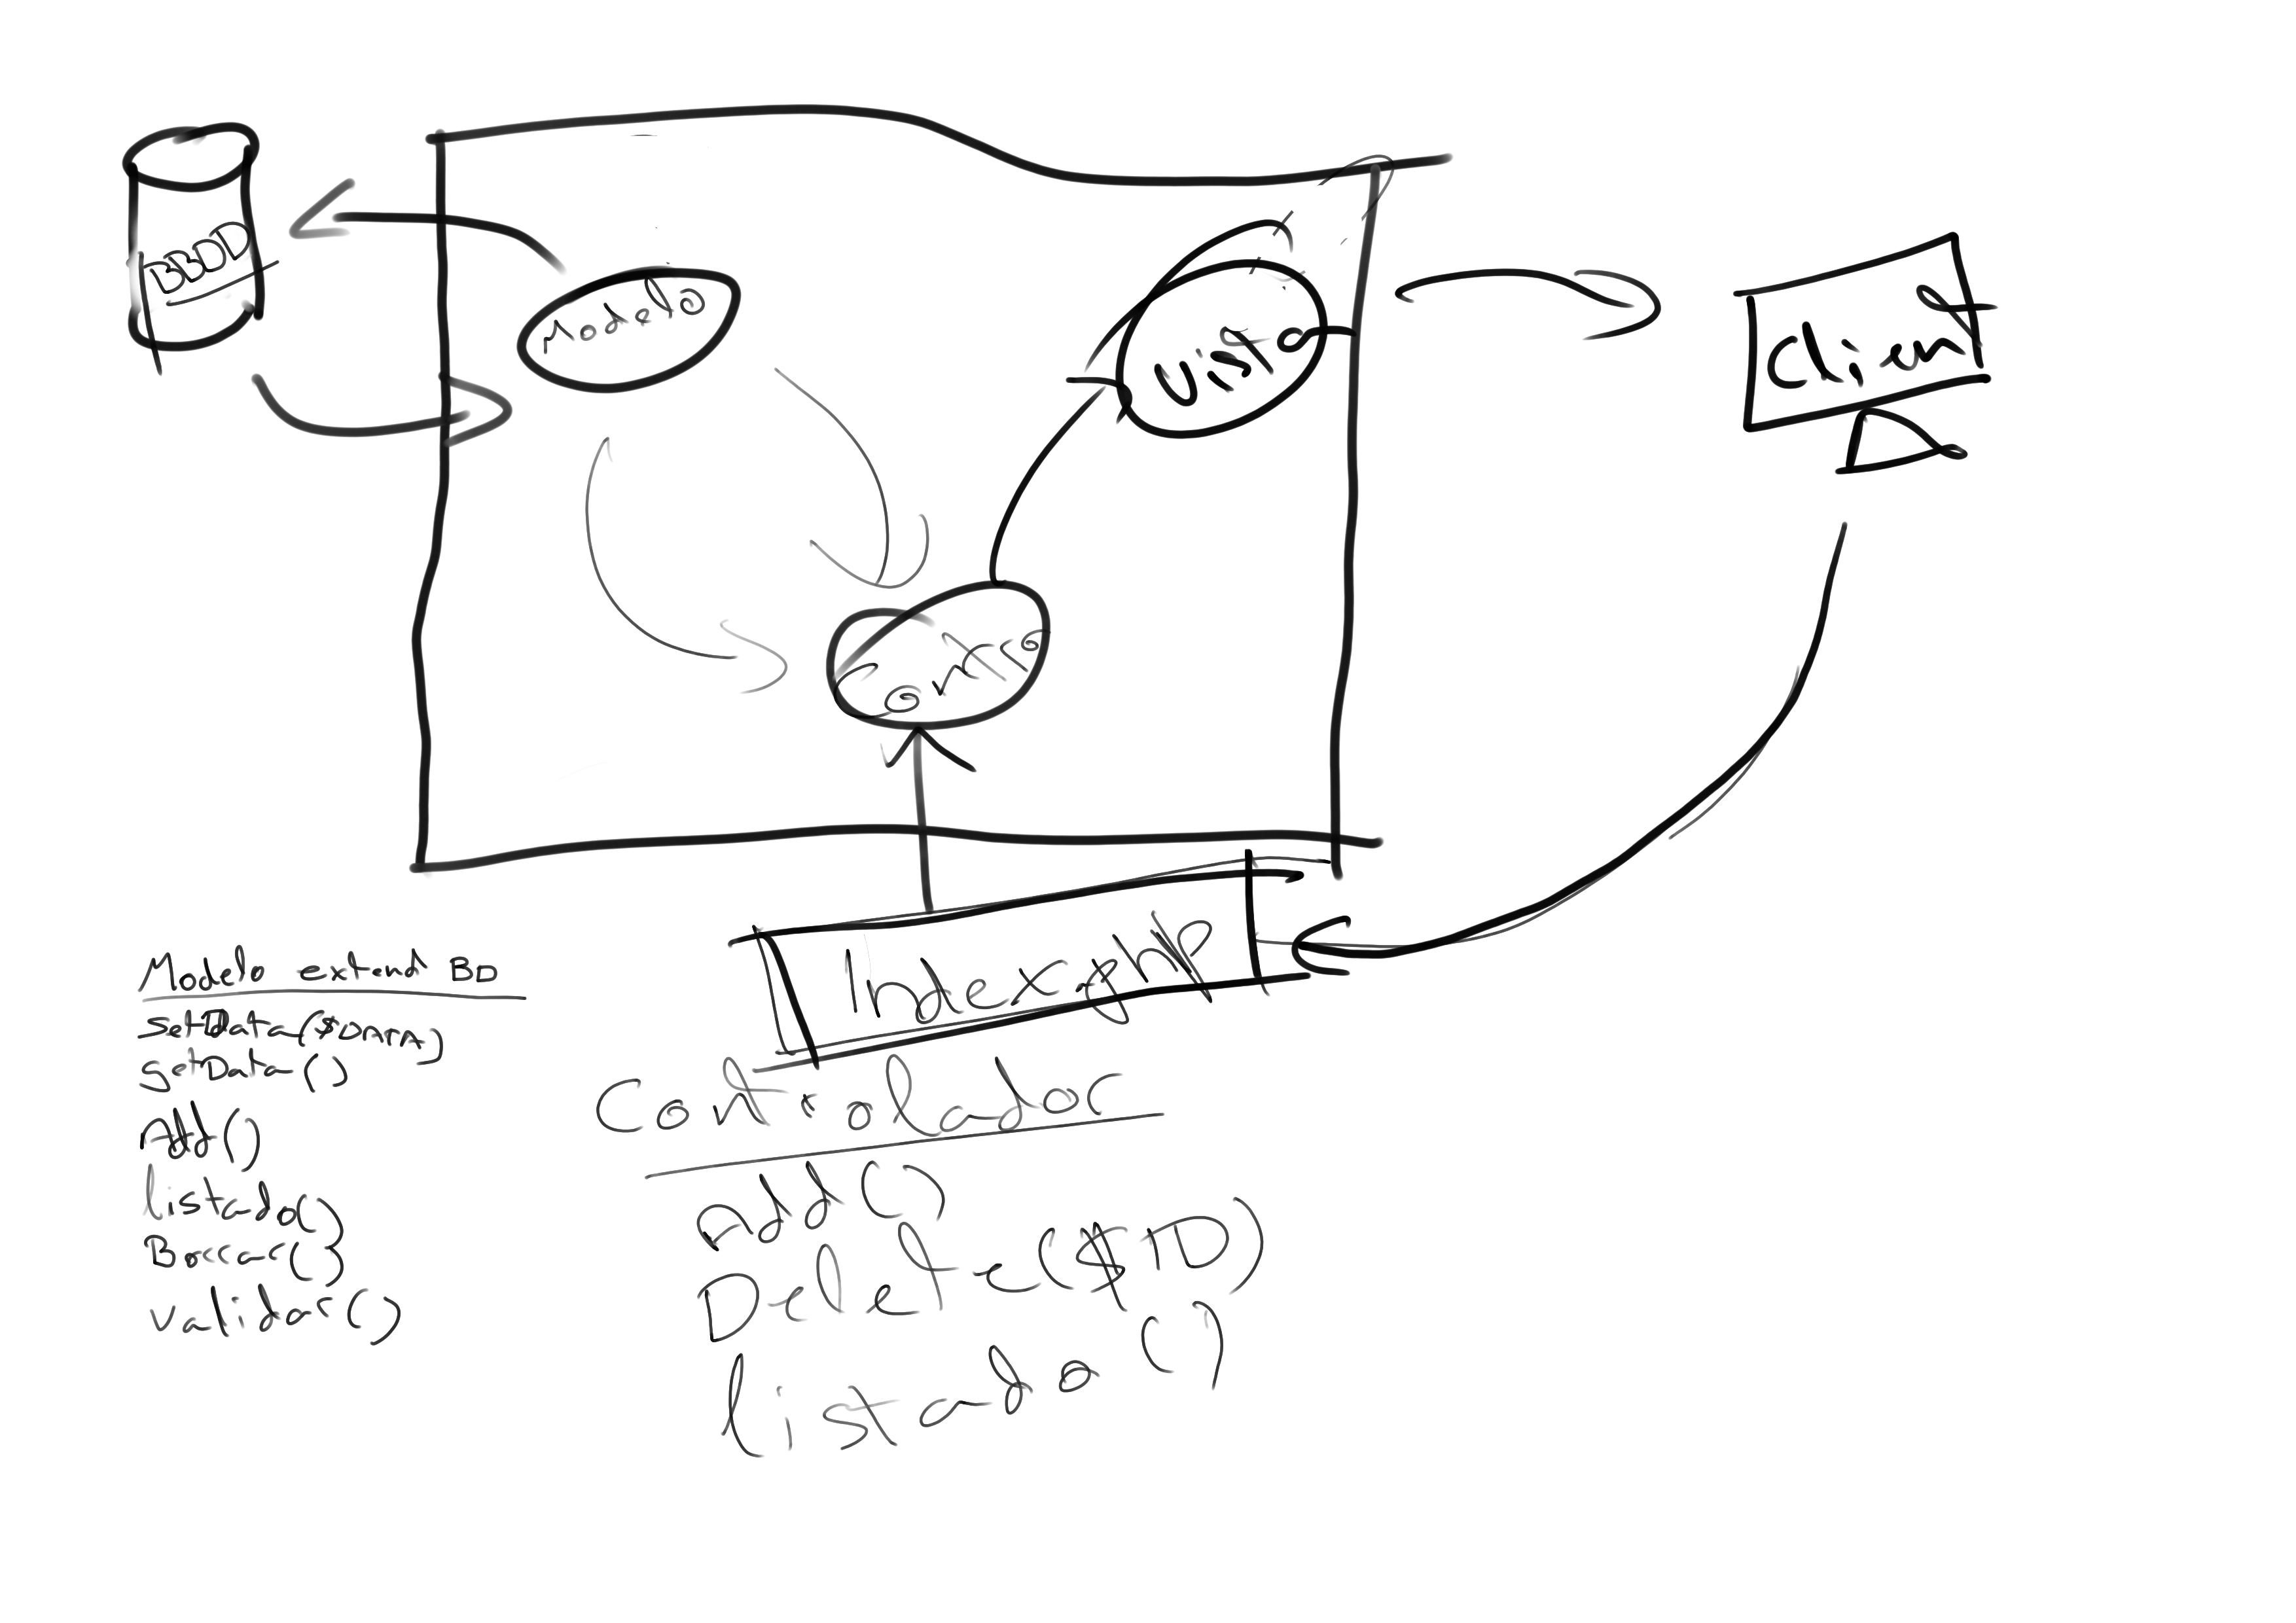 BBDD
Modelo
Vista
Client
Contro
Index.php
Modelo extend BD
setData($DATA)
getData()
Add()
listado()
Borrar()
validar()
Controlador
Add()
Delete($ID)
listado()